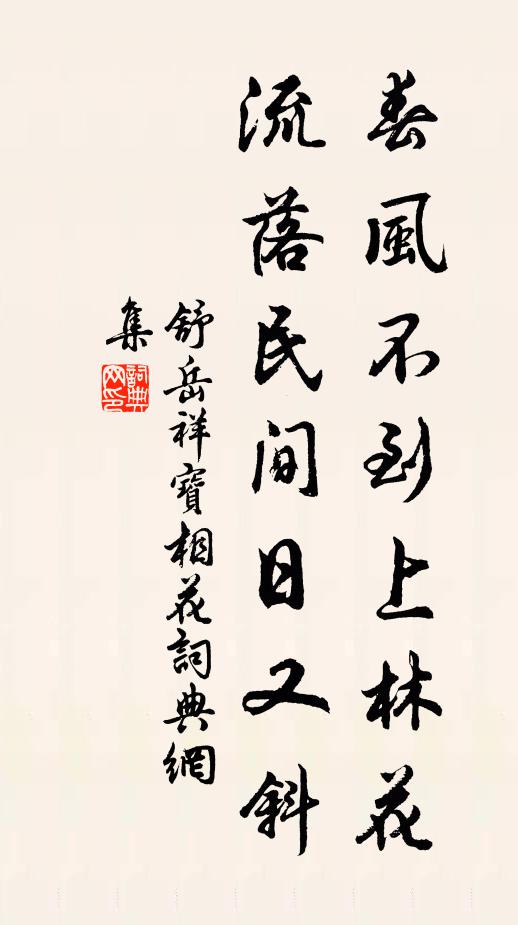 春風不到上林花
流落民間日又斜
舒岳祥寶相花詞典網
集
詞典
网印